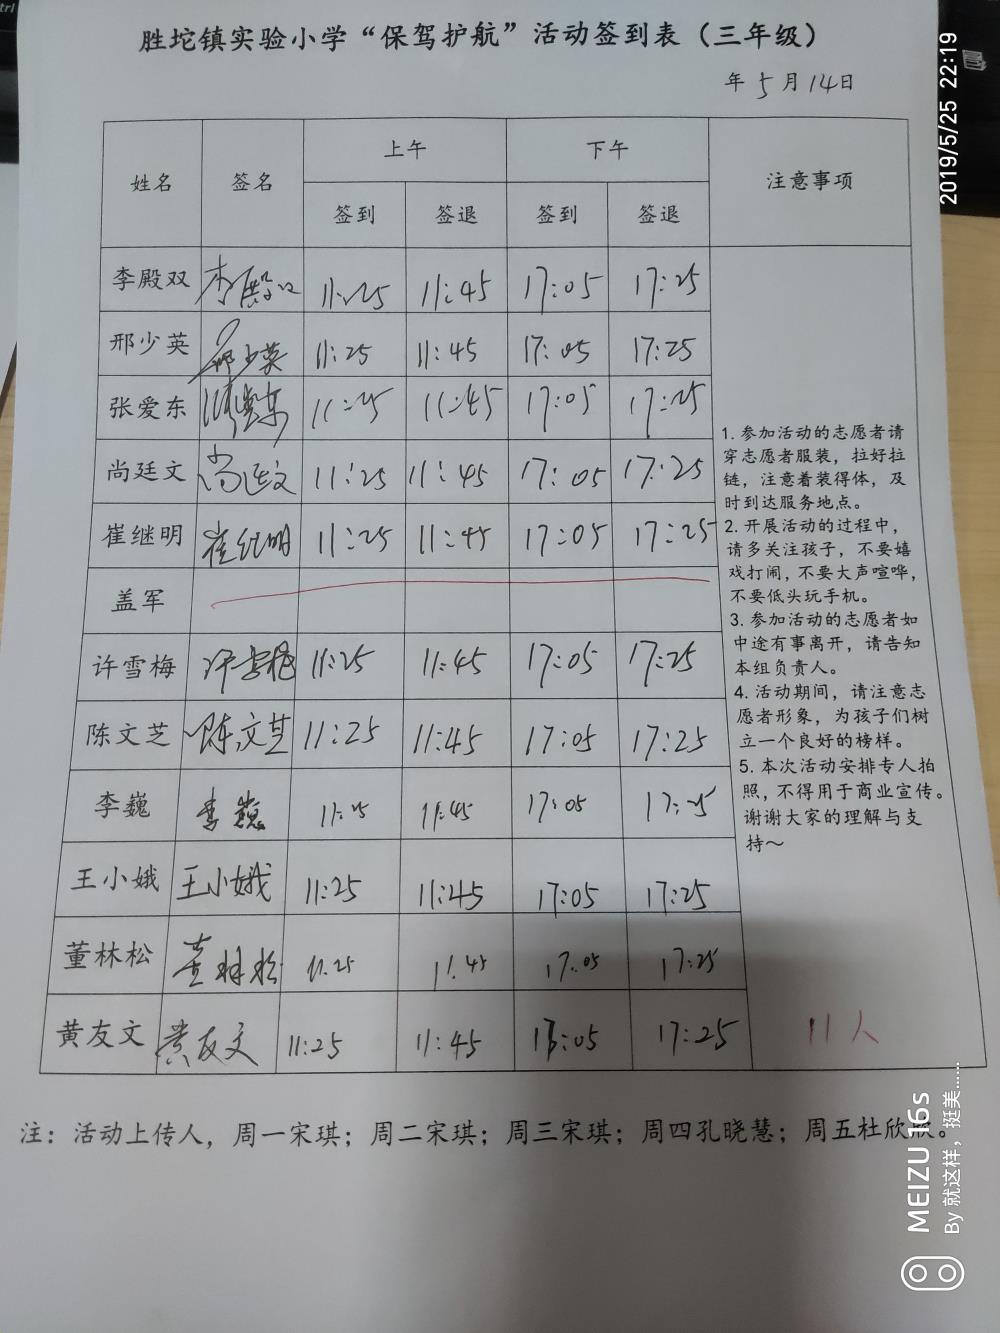 胜坨镇实验小学“保驾护航”活动签到表（三年级）
年5月14日
姓名 签名 上午 下午 注意事项
签到 签退 签到 签退
李殿双 李殿双 11:25 11:45 17:05 17:25
邢少英 邢少英 11:25 11:45 17:05 17:25
张爱东 张爱东 11:25 11:45 17:05 17:25
尚廷文 尚廷文 11:25 11:45 17:05 17:25
崔继明 崔继明 11:25 11:45 17:05 17:25
盖军
许雪梅 许雪梅 11:25 11:45 17:05 17:25
陈文芝 陈文芝 11:25 11:45 17:05 17:25
李巍 李巍 11:25 11:45 17:05 17:25
王小娥 王小娥 11:25 11:45 17:05 17:25
董林松 董林松 11.25 11.45 17:05 17:25
黄友文 黄友文 11:25 11:45 17:05 17:25
1. 参加活动的志愿者请
穿志愿者服装，拉好拉
链，注意着装得体，及
时到达服务地点。
2. 开展活动的过程中，
请多关注孩子，不要嬉
戏打闹，不要大声喧哗，
不要低头玩手机。
3. 参加活动的志愿者如
中途有事离开，请告知
本组负责人。
4. 活动期间，请注意志
愿者形象，为孩子们树
立一个良好的榜样。
5. 本次活动安排专人拍
照，不得用于商业宣传。
谢谢大家的理解与支
持～
11人
注：活动上传人，周一宋琪；周二宋琪；周三宋琪；周四孔晓慧；周五杜欣欣。
2019/5/25 22:19
MEIZU 16s
By 就这样，挺美……